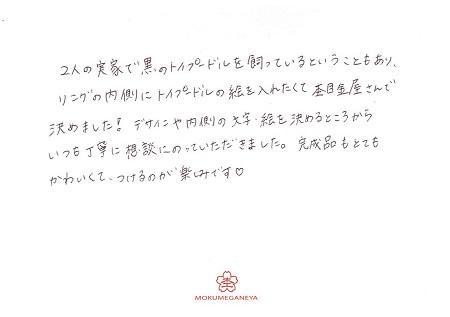 2人の実家で黒のトイプードルを飼っているということもあり、
リングの内側にトイプードルの絵を入れたくて杢目金屋さんで
決めました! デザインや内側の文字・絵を決めるところから
いつも丁寧に相談にのっていただきました。完成品もとても
かわいくて、つけるのが楽しみです♡
MOKUMEGANEYA